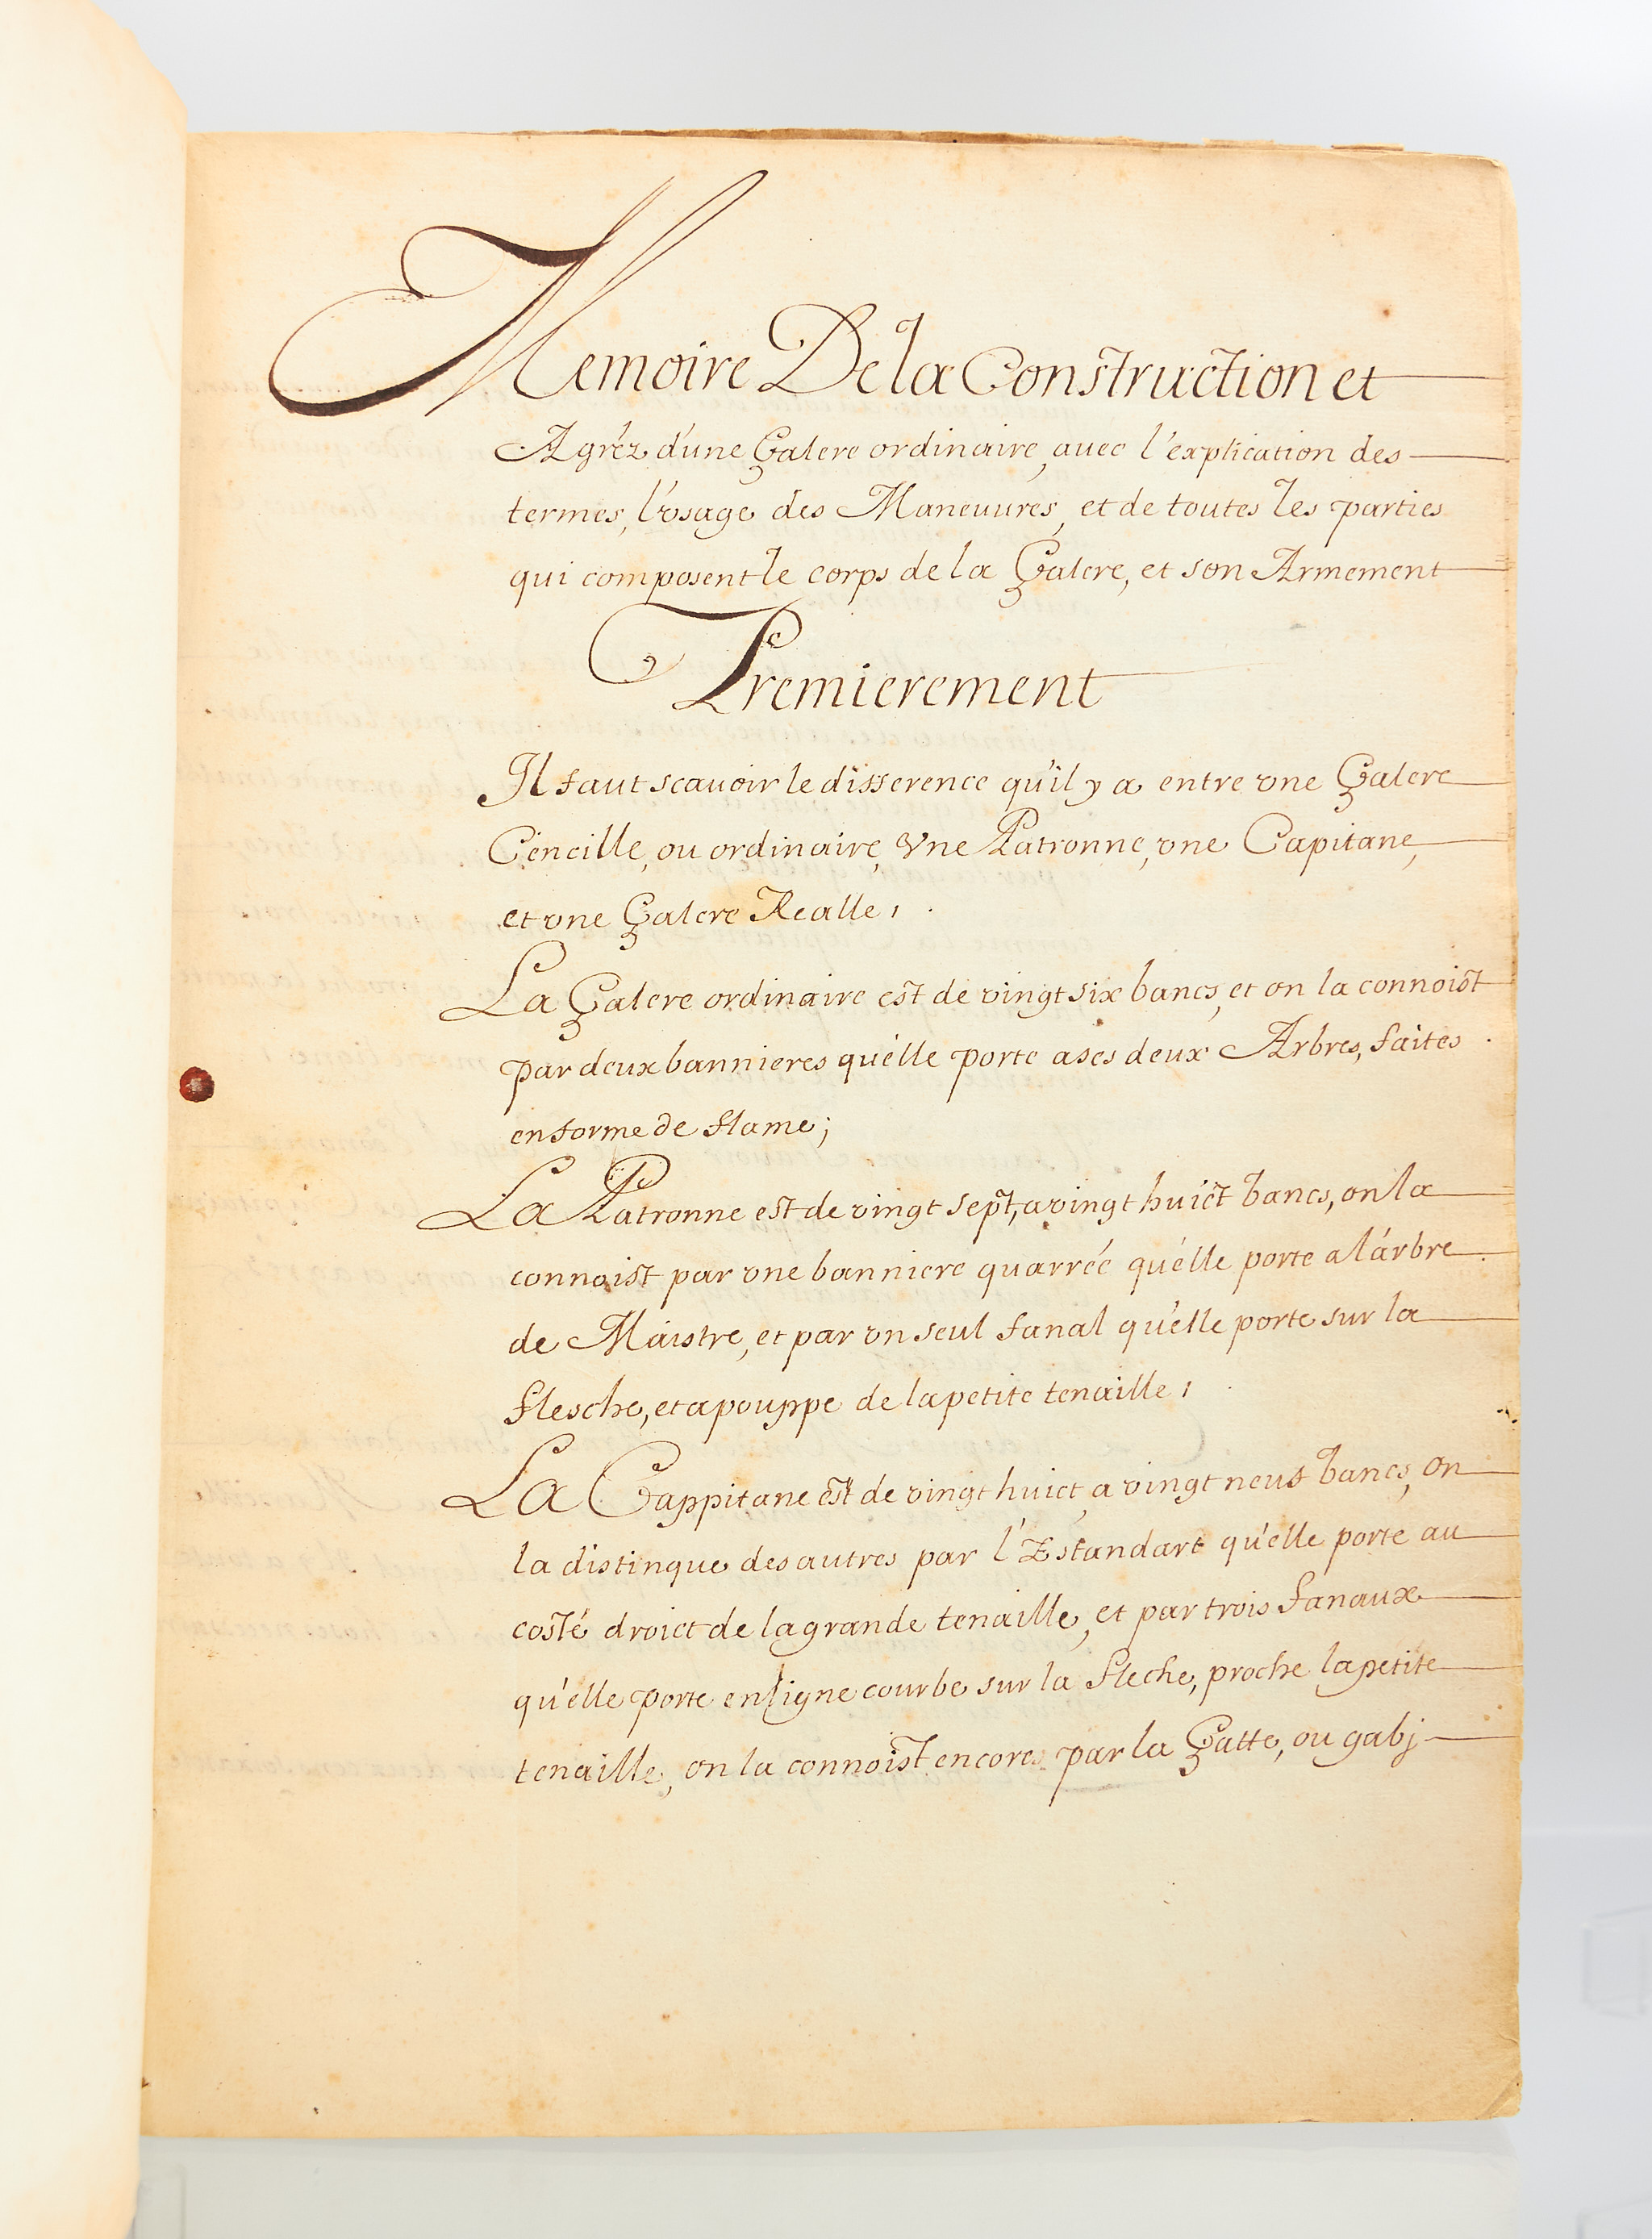 Memoire De la Construction et
Agréz d'une Galere ordinaire, avec l'explication des
termes, l'vsage des Maneuures, et de toutes les parties
qui composent le corps de la Galere, et son Armement
Premierement
Il faut scauoir le difference qu'il y a entre vne Galere
Cencille, ou ordinaire, Vne Patronne, vne Capitane,
et vne Galere Realle,
La Galere ordinaire est de vingt six bancs, et on la connoist
par deux bannieres qu'elle porte a ses deux Arbres, faites
en forme de flame;
La Patronne est de vingt sept, a vingt huict bancs, on la
connoist par vne banniere quarrée qu'elle porte a l'arbre
de Maistre, et par vn seul fanal qu'elle porte sur la
flesche, et a pouppe de la petite tenaille,
La Cappitane est de vingt huict a vingt neuf bancs, on
la distingue des autres par l'Estandart qu'elle porte au
costé droict de la grande tenaille, et par trois fanaux
qu'elle porte en ligne courbe sur la fleche, proche la petite
tenaille, on la connoist encores par la Gatte, ou gabj